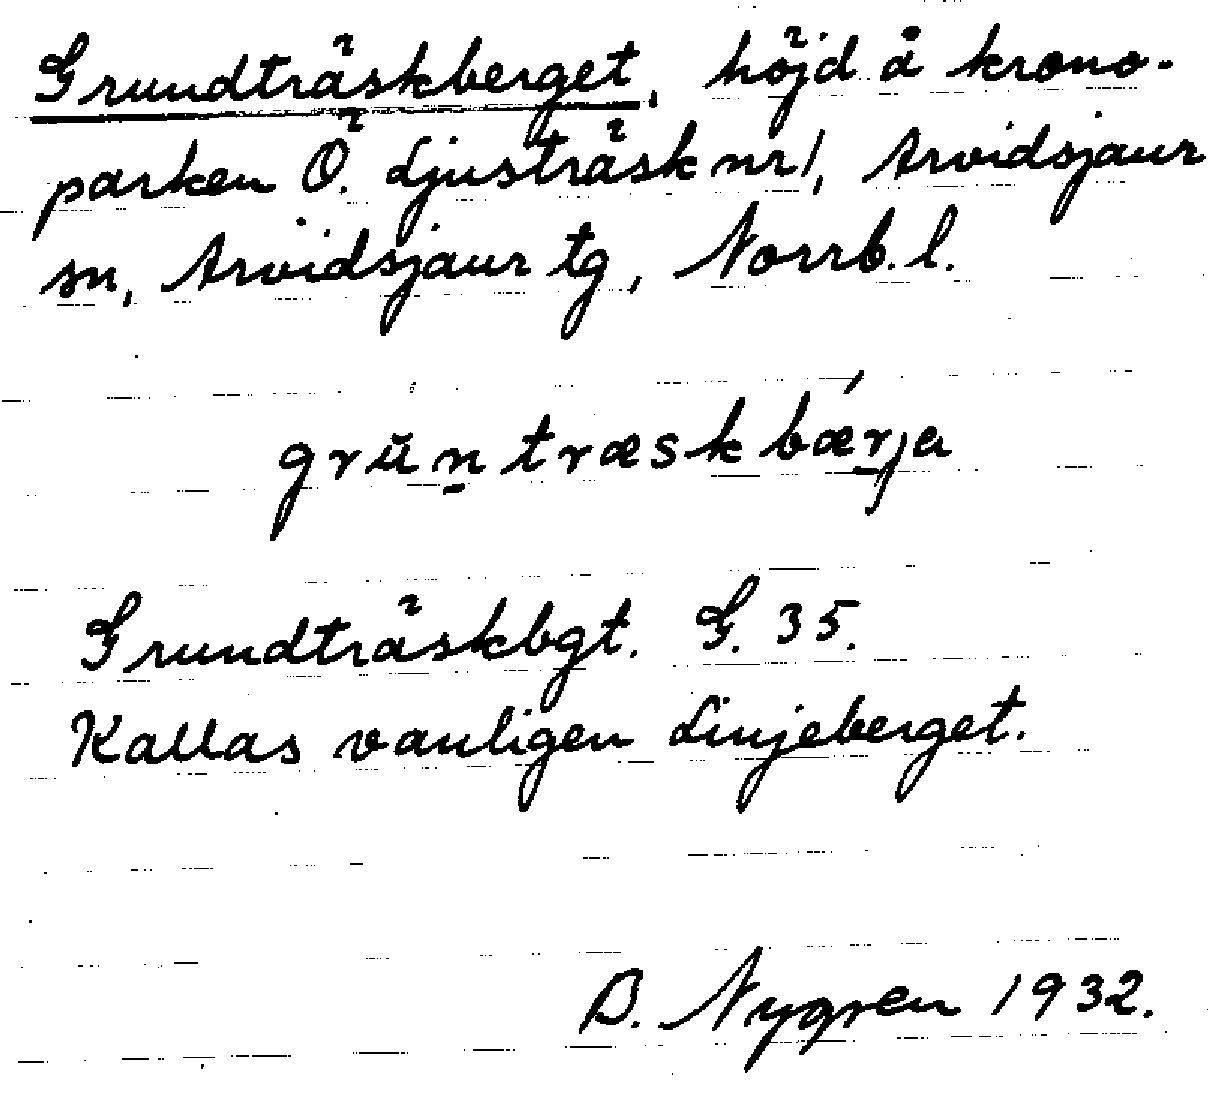 Grundträskberget, höjd å krono-
parken Ö. Ljusträsk nr 1, Arvidsjaur
sn, Arvidsjaur tg, Norrb. l.
grŭn̠træskbǽr̠ja
Grundträskbgt. G. 35.
Kallas vanligen Linjeberget.
B. Nygren 1932.